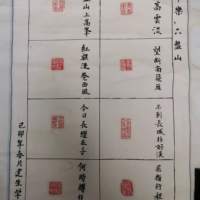 樂 六盤山
高雲淡
望斷南飛雁
不到長城非好漢
屈指行程
山上高峰
紅旗漫卷西風
今日長纓在手
何時縛住
己卯年冬月